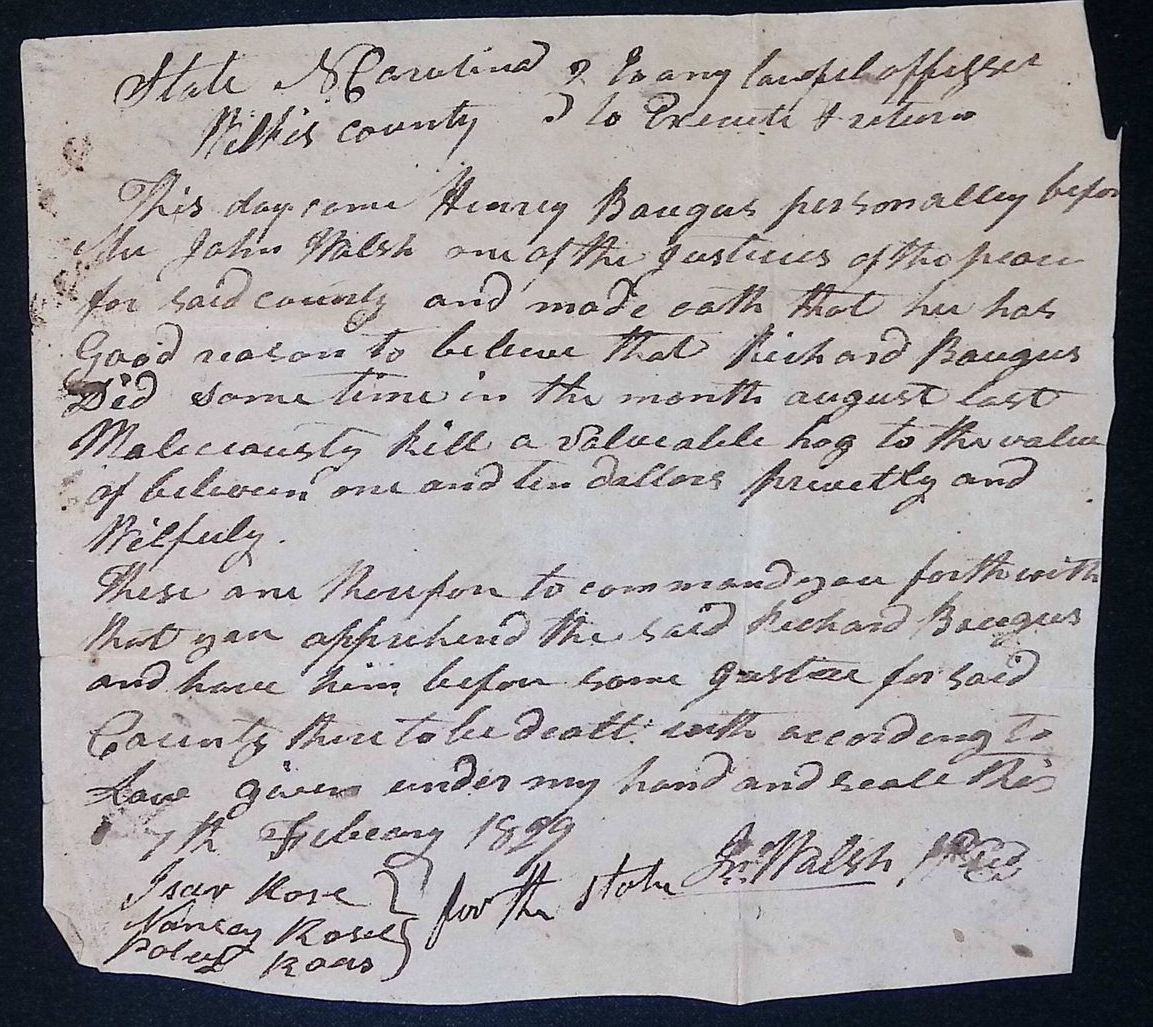 State N Carolina } To any lawful offisser
Wilkis county } to Execute & return
This day came Henrey Baugus personalley befor
Me John Walsh one of the Justices of the peace
for said county and made oath that hee has
Good reason to beleeve that Richard Baugus
Did some time in the month august last
Maleciously kill a valueable hog to the value
of between one and ten dollors privetly and
Wilfuly.
These are therefore to command you forthwith
that you apprehend the said Richard Baugus
and have him before some Justice for said
County there to be dealt with according to
Law given under my hand and seale this
7th Febeary 1829
Jno Walsh
Isac Rose } for the state
Nancy Rose
Roas